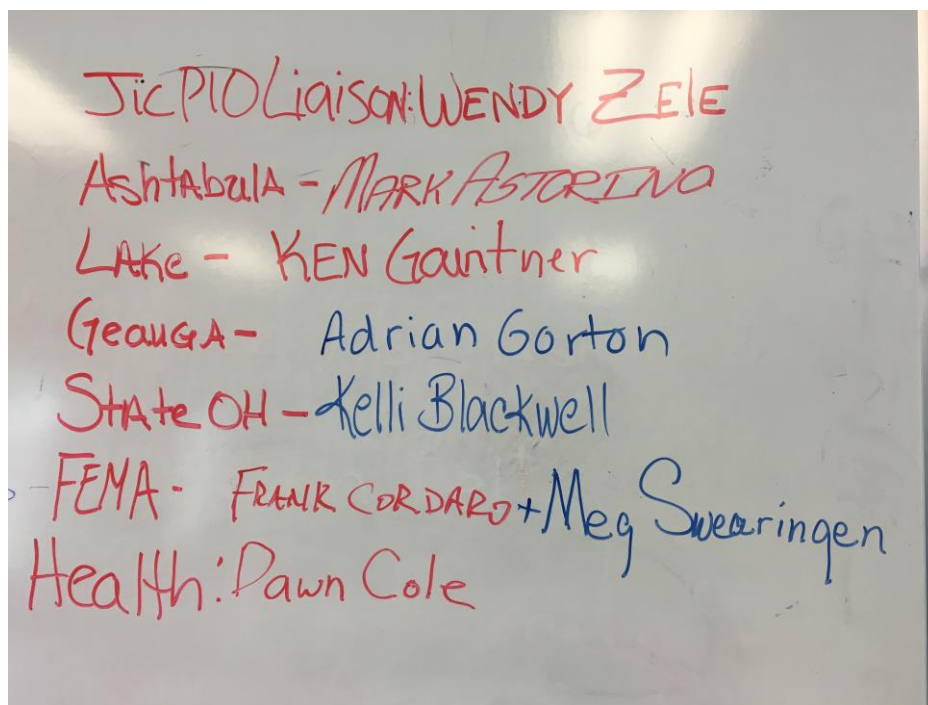 Jic PIO Liaison: WENDY ZElE
AshtAbulA - MARK ASTORINO
LAKe - KEN Gaintner
GeauGA - Adrian Gorton
StAte OH - Kelli Blackwell
FEMA - FRANK CORDARO + Meg Swearingen
Health: Dawn Cole